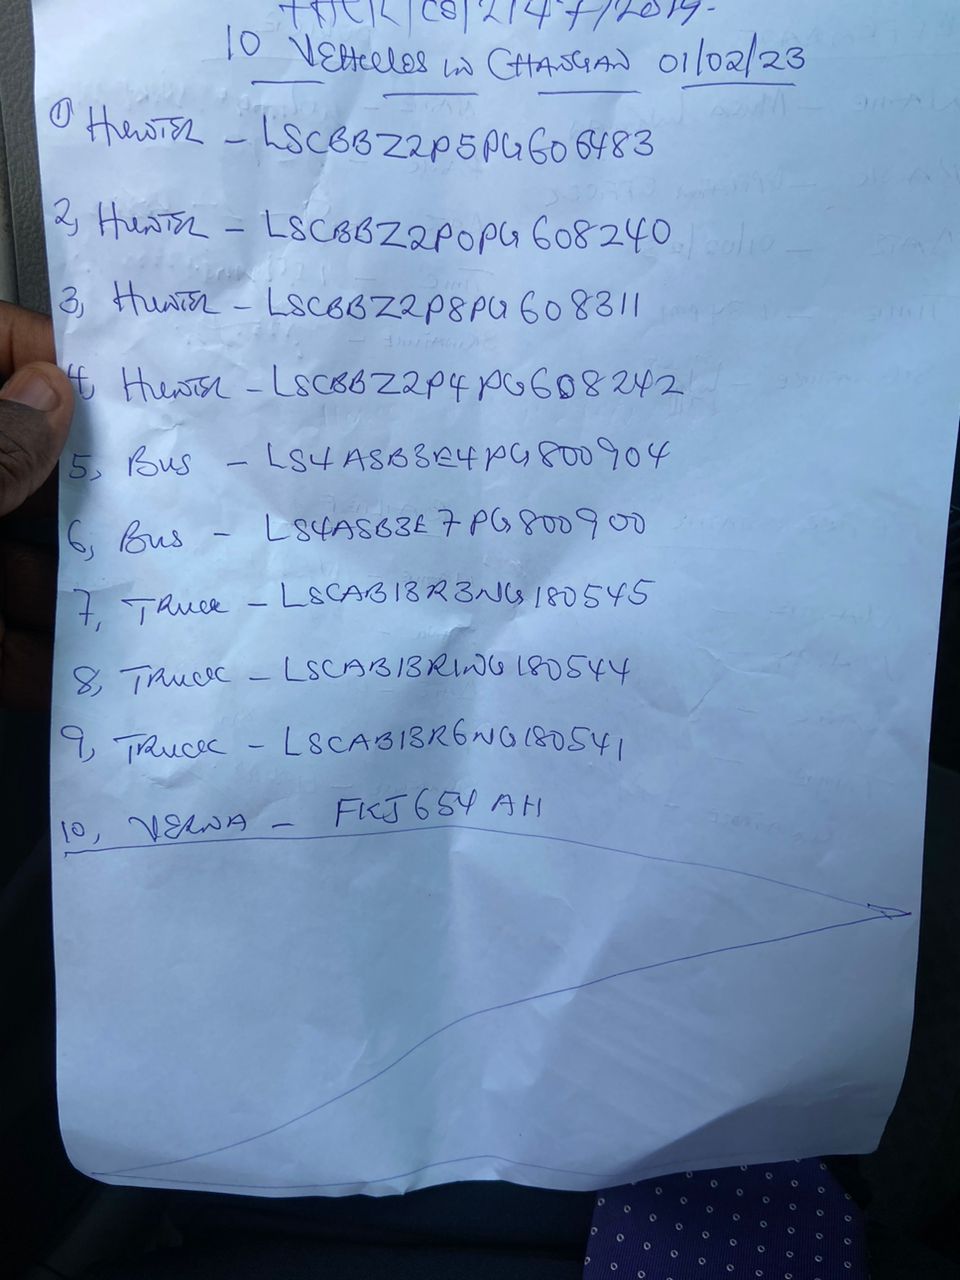 10 VEHICLES IN CHANGAN 01/02/23
① HUNTER - LSCBBZ2P5PG606483
2, HUNTER - LSCBBZ2P0PG608240
3, HUNTER - LSCBBZ2P8PG608311
4, HUNTER - LSCBBZ2P4PG608242
5, BUS - LS4ASB3E4PG800904
6, BUS - LS4ASB3E7PG800900
7, TRUCK - LSCAB13R3NG180545
8, TRUCK - LSCAB13R1NG180544
9, TRUCK - LSCAB13R6NG180541
10, VERNA - FKJ654AH